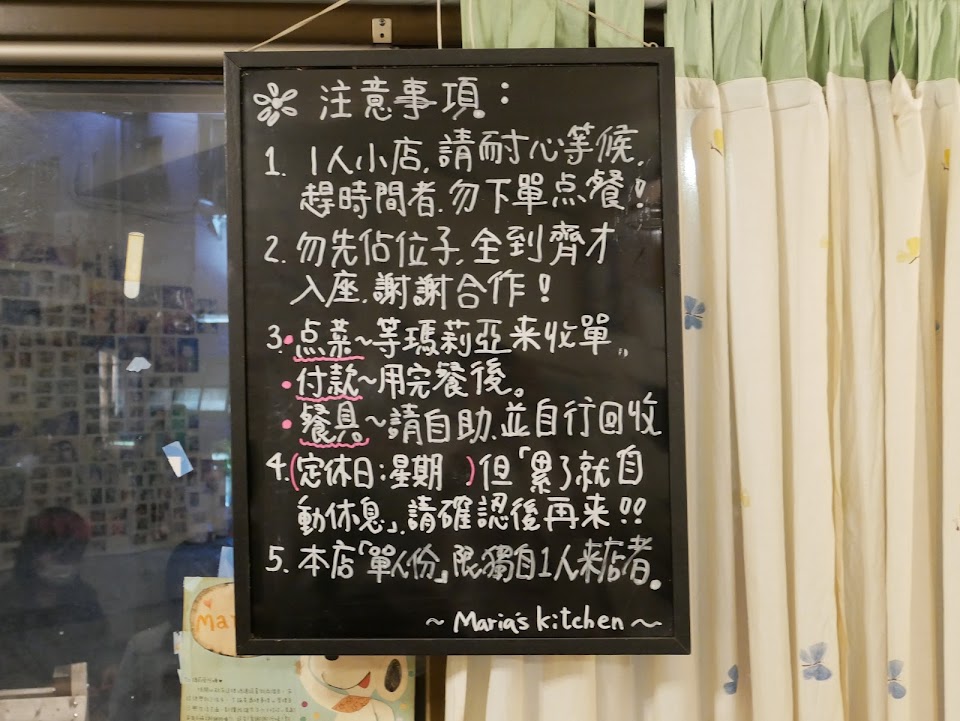 注意事項：
1. 1人小店，請耐心等候，
趕時間者，勿下單点餐！
2. 勿先佔位子，全到齊才
入座，謝謝合作！
3. •点菜~等瑪莉亞来收單，
•付款~用完餐後。
•餐具~請自助、並自行回收
4.(定休日：星期 )但「累了就自
動休息」，請確認後再来!!
5. 本店「單人份」，限獨自1人来店者。
~ Maria's kitchen ~